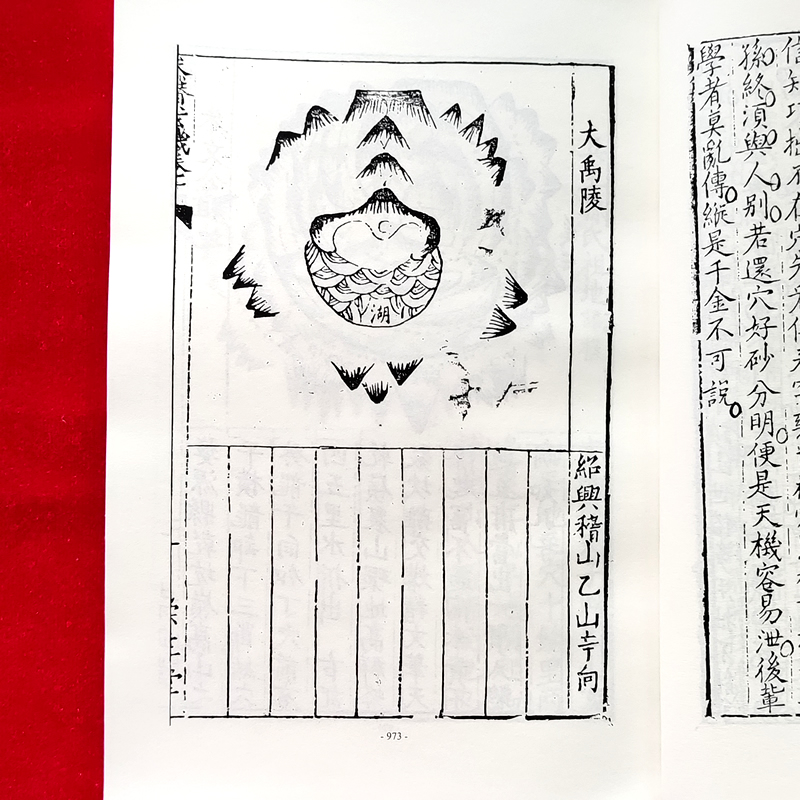 孫終須與人別若還穴好砂分明便是天機容易泄後輩
學者莫亂傳縱是千金不可說
大禹陵
湖
紹興稽山乙山辛向
- 973 -